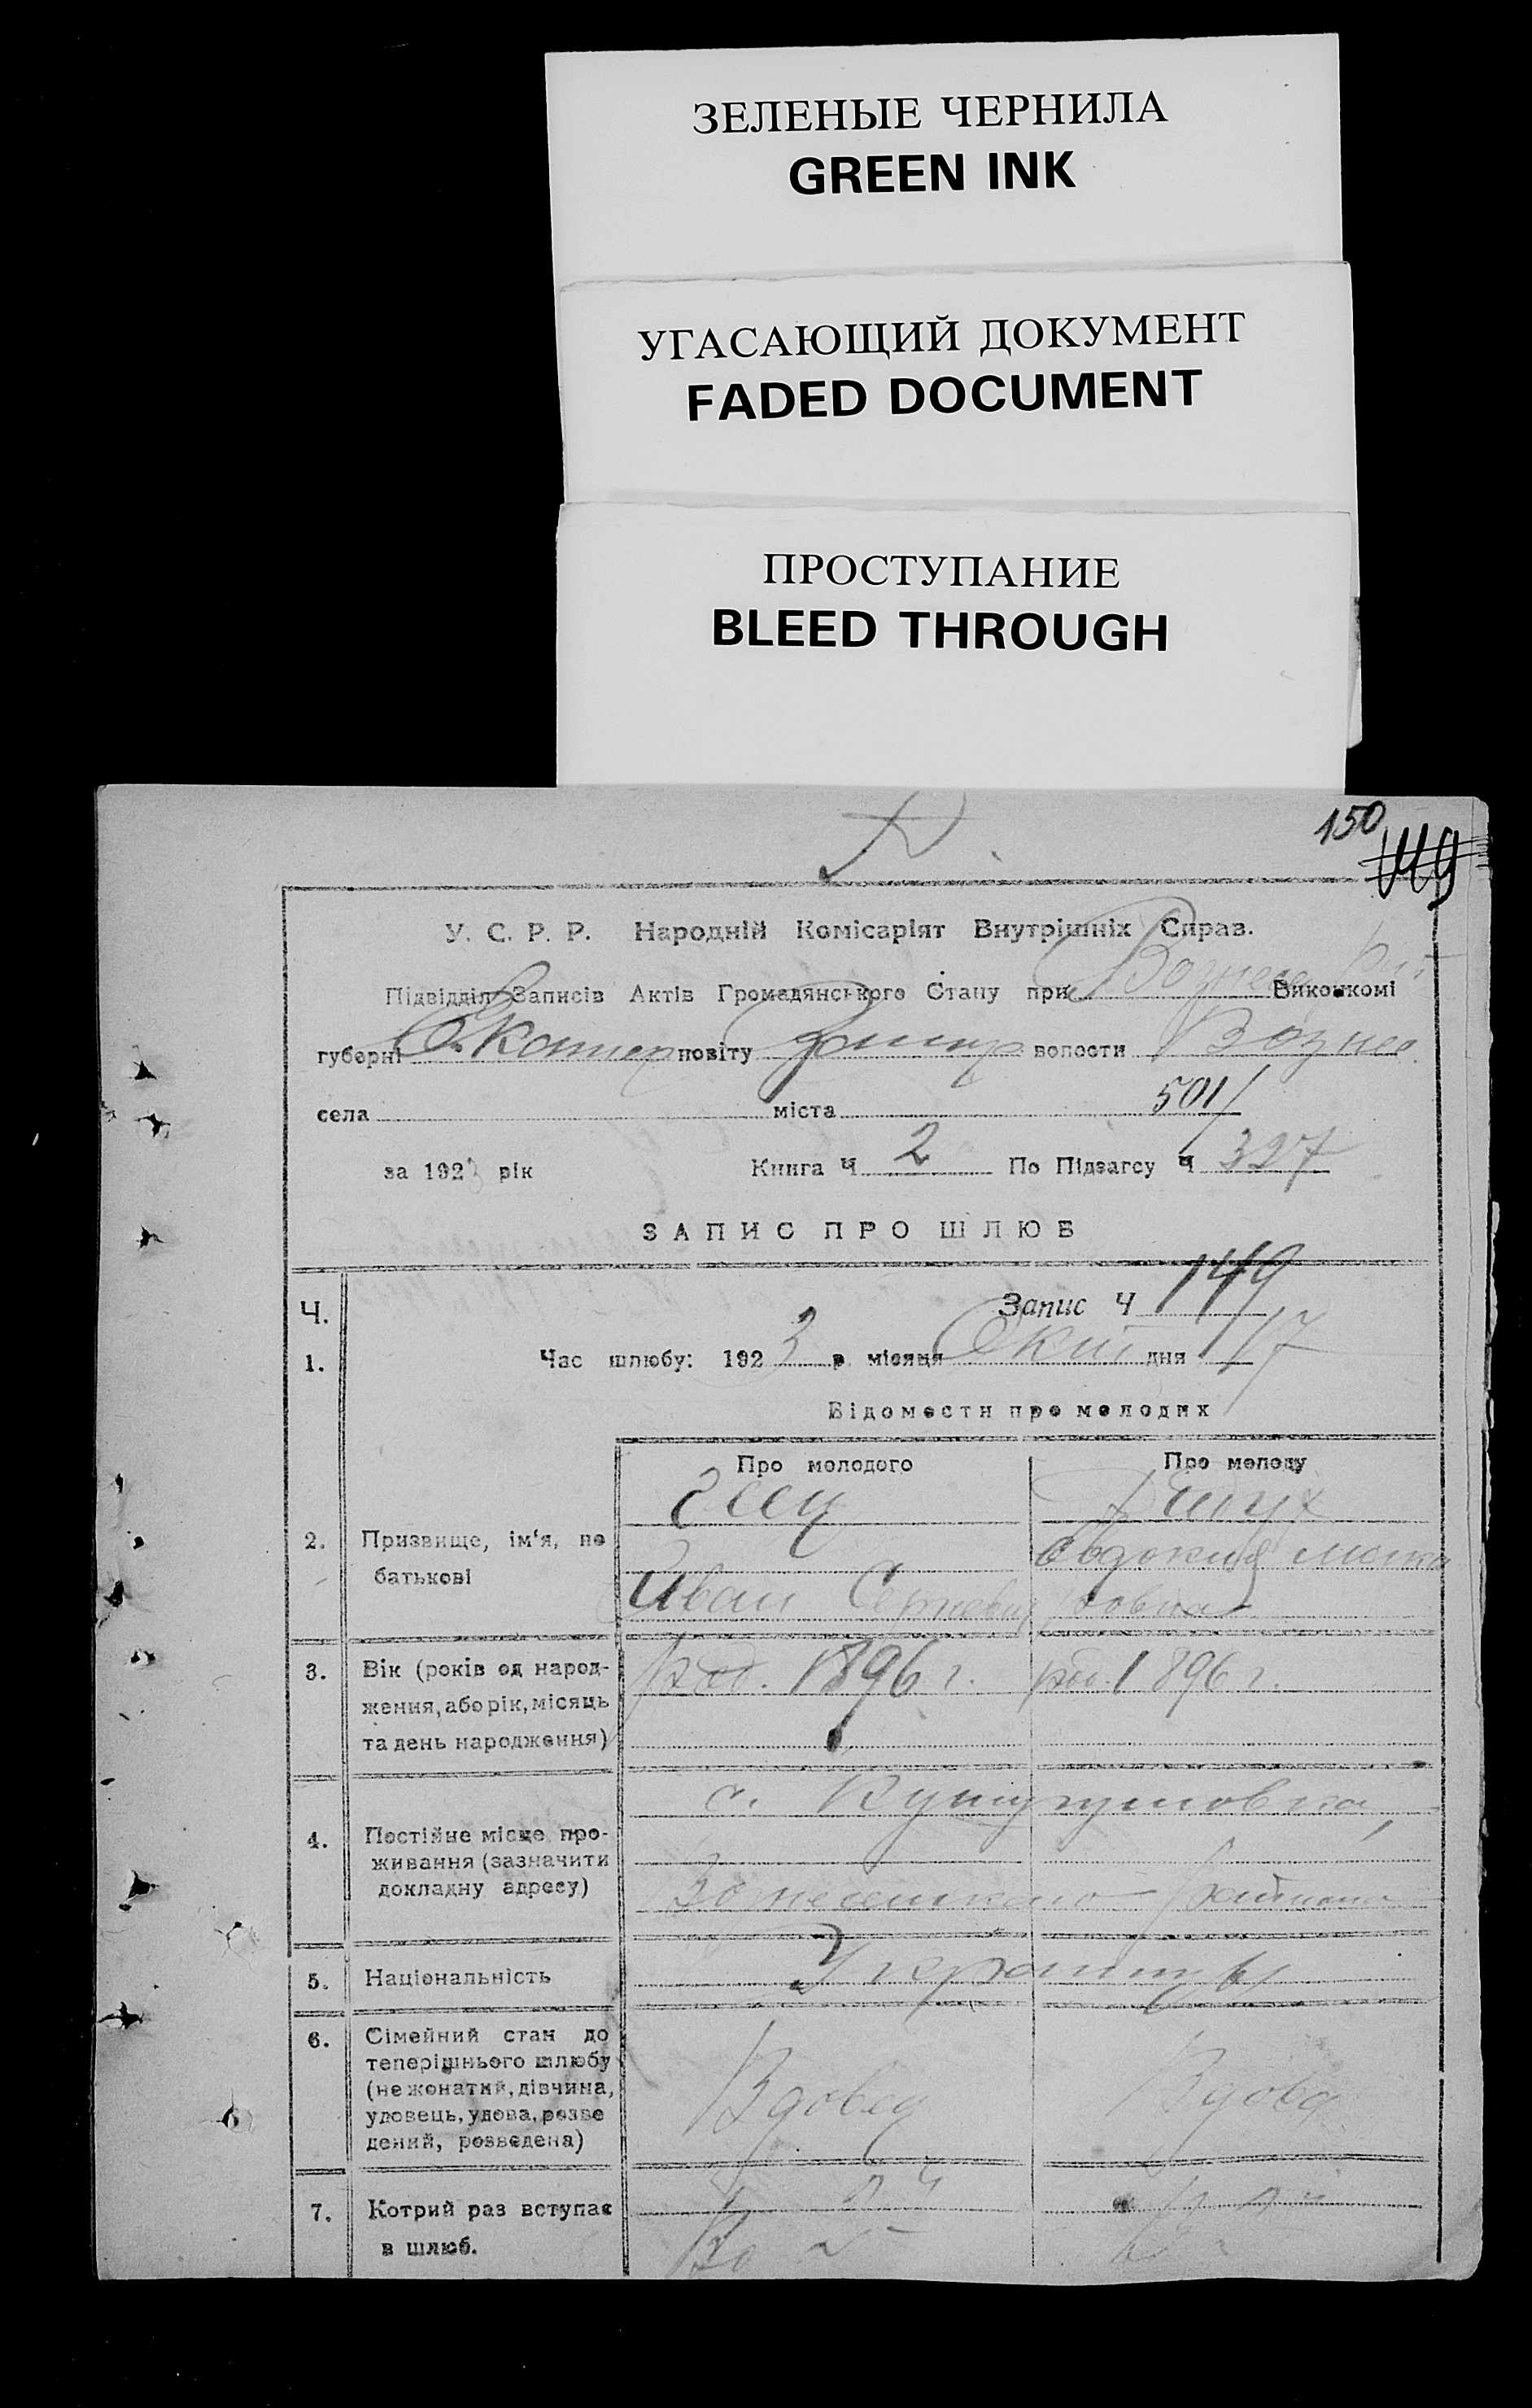 ЗЕЛЕНЫЕ ЧЕРНИЛА
GREEN INK
УГАСАЮЩИЙ ДОКУМЕНТ
FADED DOCUMENT
ПРОСТУПАНИЕ
BLEED THROUGH
150
149
У. С. Р. Р. Народній Комісаріят Внутрішніх Справ.
Підвідділ Записів Актів Громадянського Стану при Вознес. Виконкомі
губерні Екатер повіту волости Вознес.
села міста 501
за 1923 рік Книга Ч 2 По Підзагсу Ч 327
ЗАПИС ПРО ШЛЮБ
Ч. Запис Ч 149
1. Час шлюбу: 1923 р місяця Окт дня 17
Відомости про молодих
Про молодого Про молоду
2. Призвище, ім'я, по
батькові
Евдокия
Иван Сергеевич
3. Вік (років од народ- род. 1896 г. род. 1896 г.
ження, або рік, місяць
та день народження)
с. Кушугумовка,
4. Постійне місце про-
живання (зазначити
докладну адресу)
района
5. Національність Украинцы
6. Сімейний стан до
теперішнього шлюбу
(не жонатий, дівчина, Вдовец Вдова
удовець, удова, розве
дений, розведена)
7. Котрий раз вступає
в шлюб.